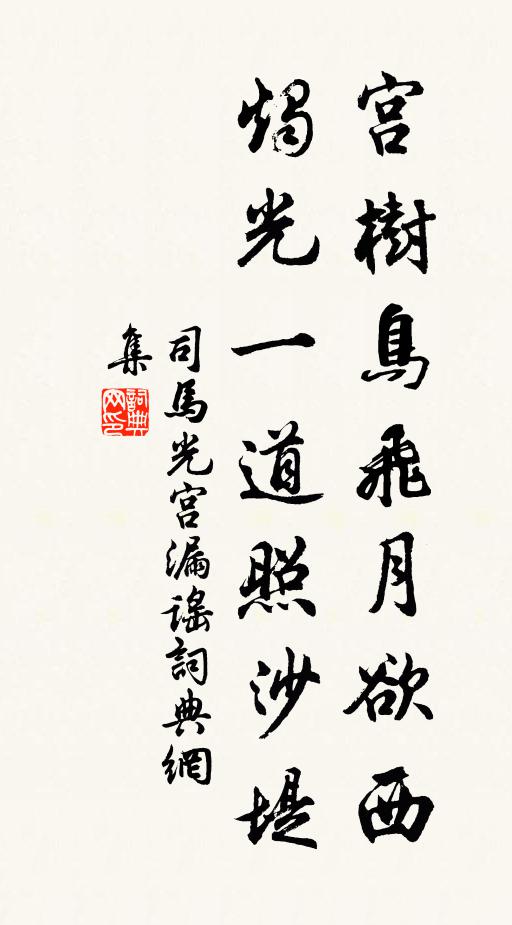 宫樹鳥飛月欲西
燭光一道照沙堤
司馬光宫漏謡詞典網
集
詞典
网印